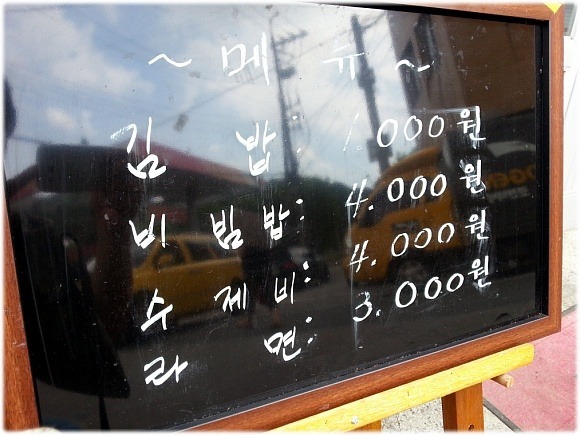 ~ 메 뉴 ~
김 밥 : 1.000원
비 빔 밥 : 4.000원
수 제 비 : 4.000원
라 면 : 3.000원